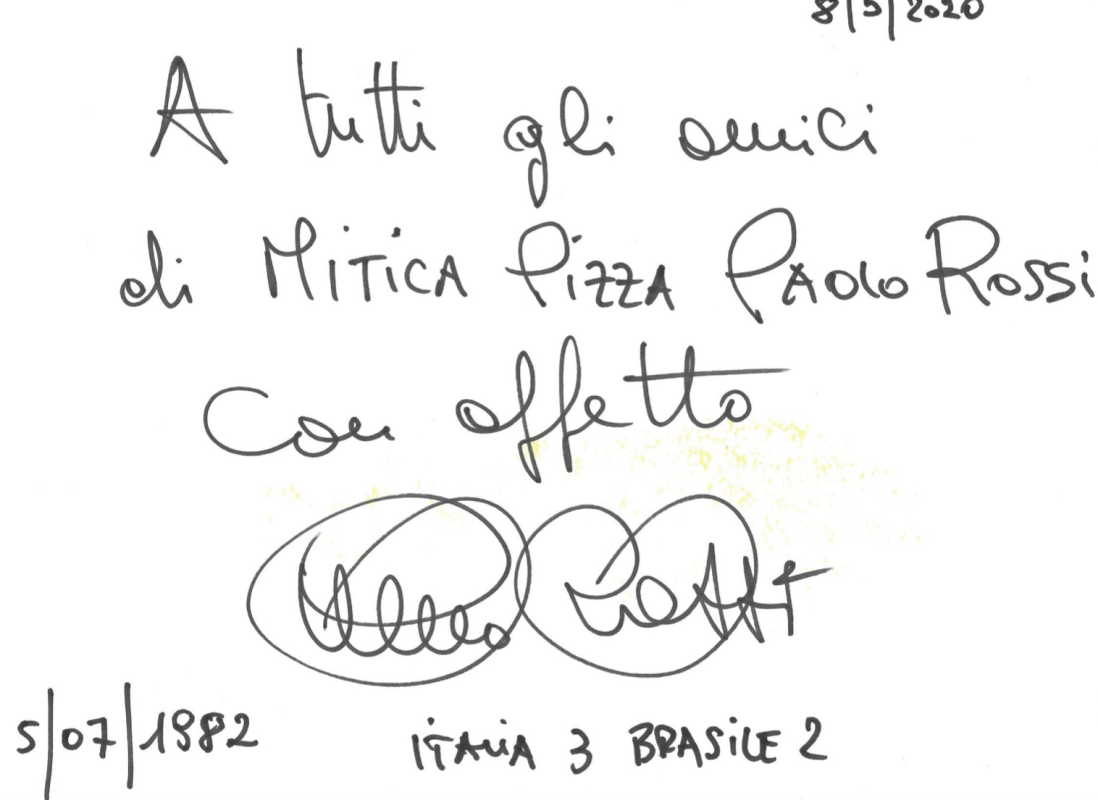 8/5/2020
A tutti gli amici
di MITICA PIZZA PAOLO ROSSI
Con affetto
Paolo Rossi
5/07/1982
ITALIA 3 BRASILE 2